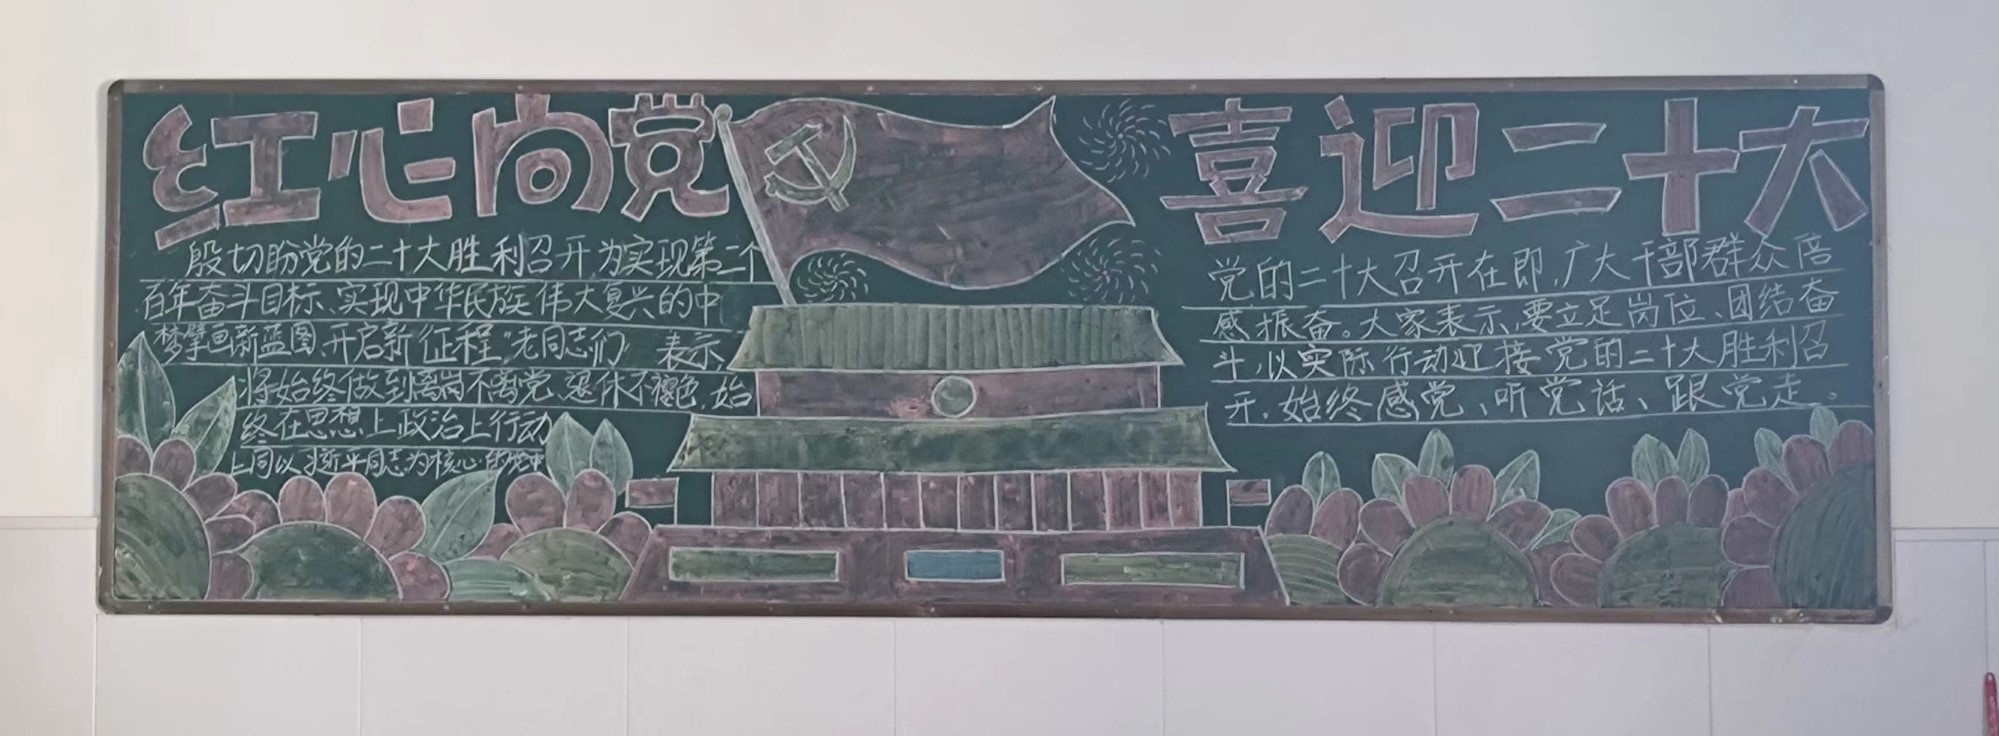 红心向党
喜迎二十大
殷切盼党的二十大胜利召开,为实现第二个
百年奋斗目标、实现中华民族伟大复兴的中
梦擘画新蓝图、开启新征程,“老同志们” 表示,
将始终做到离岗不离党,退休不褪色,始
终在思想上政治上行动
上同以习近平同志为核心的党中
党的二十大召开在即,广大干部群众倍
感振奋。大家表示,要立足岗位、团结奋
斗,以实际行动迎接党的二十大胜利召
开,始终感党、听党话、跟党走。